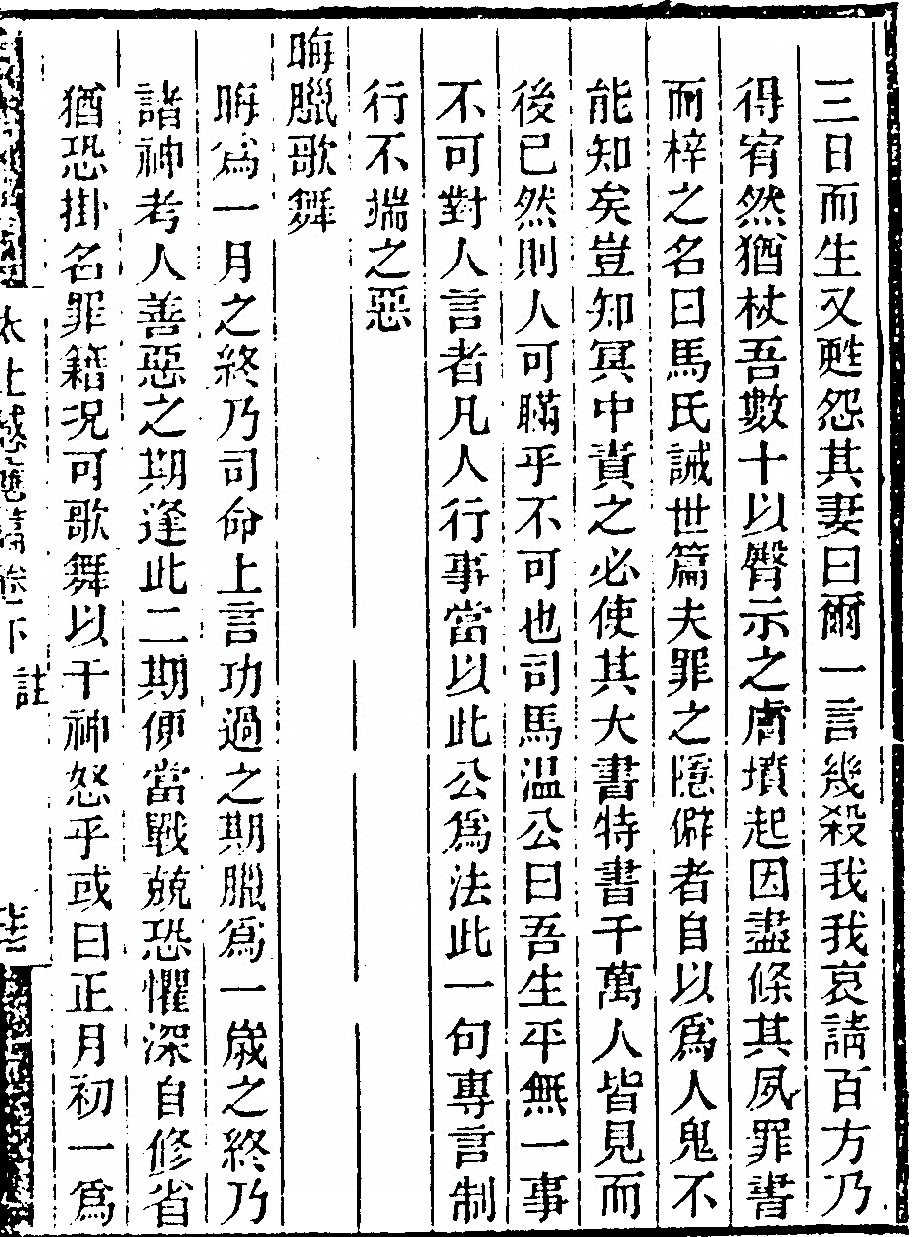 三日而生又甦怨其妻曰爾一言幾殺我我哀請百方乃
得宥然猶杖吾數十以臀示之膚墳起因盡條其夙罪書
而梓之名曰馬氏誡世篇夫罪之隱僻者自以爲人鬼不
能知矣豈知冥中責之必使其大書特書千萬人皆見而
後已然則人可瞞乎不可也司馬温公曰吾生平無一事
不可對人言者凡人行事當以此公爲法此一句專言制
行不端之惡
晦臘歌舞
晦爲一月之終乃司命上言功過之期臘爲一歲之終乃
諸神考人善惡之期逢此二期便當戰兢恐懼深自修省
猶恐掛名罪籍况可歌舞以干神怒乎或曰正月初一爲
太上感應篇卷下 註